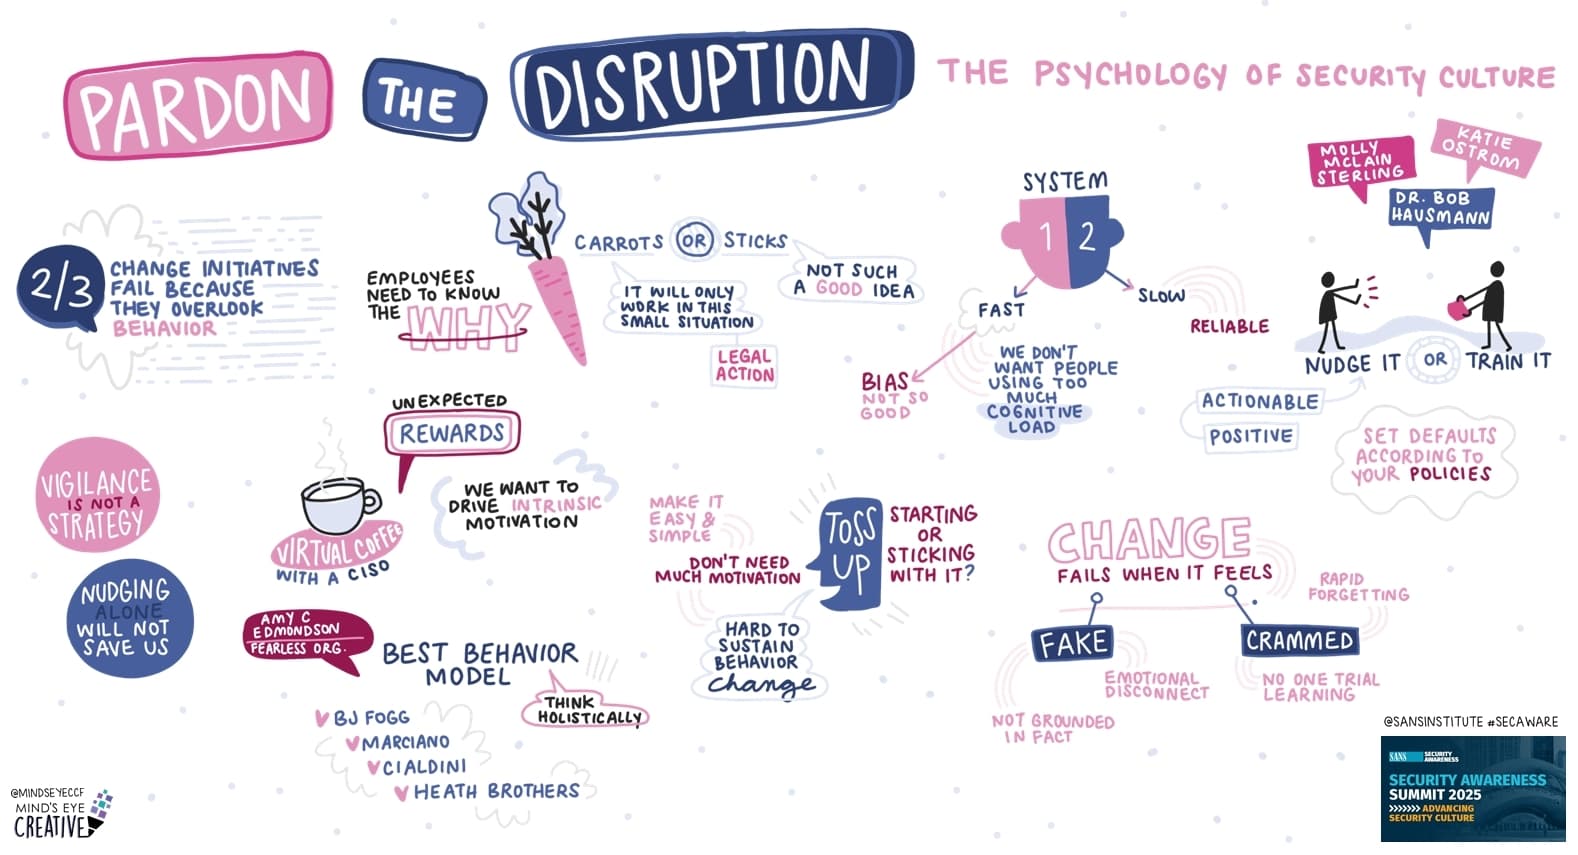 PARDON THE DISRUPTION
THE PSYCHOLOGY OF SECURITY CULTURE
MOLLY
MCLAIN
STERLING
KATIE
OSTROM
DR. BOB
HAUSMANN
2/3
CHANGE INITIATIVES
FAIL BECAUSE
THEY OVERLOOK
BEHAVIOR
EMPLOYEES
NEED TO KNOW
THE WHY
CARROTS OR STICKS
IT WILL ONLY
WORK IN THIS
SMALL SITUATION
LEGAL
ACTION
NOT SUCH
A GOOD IDEA
SYSTEM
1 2
FAST
SLOW
RELIABLE
BIAS
NOT SO
GOOD
WE DON'T
WANT PEOPLE
USING TOO
MUCH
COGNITIVE
LOAD
NUDGE IT OR TRAIN IT
ACTIONABLE
POSITIVE
SET DEFAULTS
ACCORDING TO
YOUR POLICIES
VIGILANCE
IS NOT A
STRATEGY
NUDGING
ALONE
WILL NOT
SAVE US
UNEXPECTED
REWARDS
VIRTUAL COFFEE
WITH A CISO
WE WANT TO
DRIVE INTRINSIC
MOTIVATION
MAKE IT
EASY &
SIMPLE
DON'T NEED
MUCH MOTIVATION
TOSS
UP
STARTING
OR
STICKING
WITH IT?
HARD TO
SUSTAIN
BEHAVIOR
change
CHANGE
FAILS WHEN IT FEELS
FAKE
EMOTIONAL
DISCONNECT
NOT GROUNDED
IN FACT
CRAMMED
RAPID
FORGETTING
NO ONE TRIAL
LEARNING
AMY C
EDMONDSON
FEARLESS ORG.
BEST BEHAVIOR
MODEL
THINK
HOLISTICALLY
BJ FOGG
MARCIANO
CIALDINI
HEATH BROTHERS
@MINDSEYECCF
MIND'S EYE
CREATIVE
@SANSINSTITUTE #SECAWARE
SANS SECURITY
AWARENESS
SECURITY AWARENESS
SUMMIT 2025
>>>>>>> ADVANCING
SECURITY CULTURE